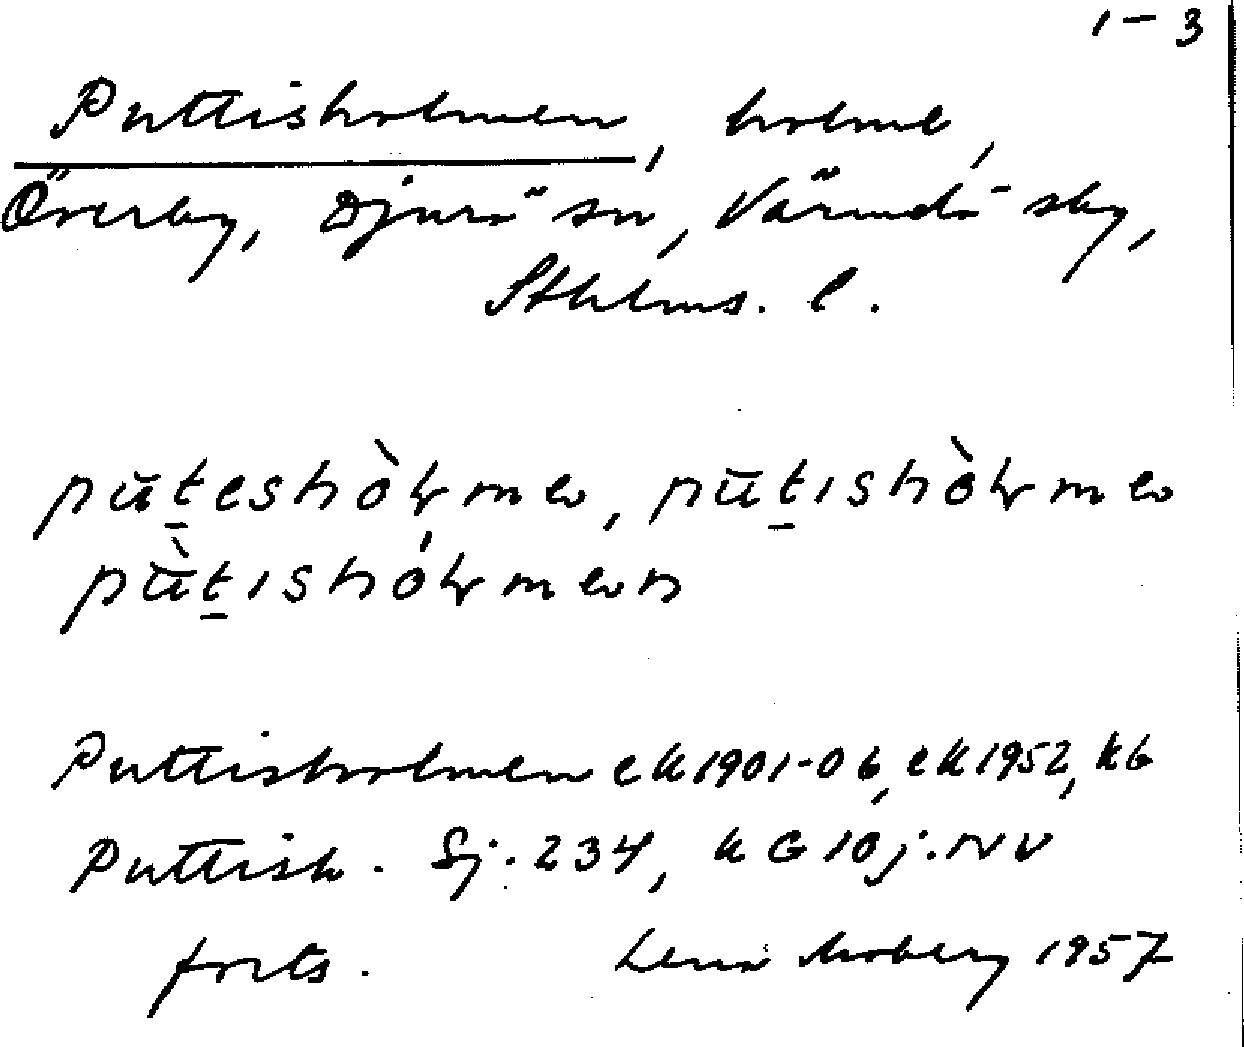 1-3
Puttisholmen, holme,
Överby, Djurö sn, Värmdö sky,
Sthlms. l.
pūt̲eshòłme, pūt̲ıshòłme
pū̀t̲ıshółmen
Puttisholmen ek 1901-06, ek 1952, kb
Puttish. Sj. 234, k G 10 j. NV
forts. Lena Moberg 1957